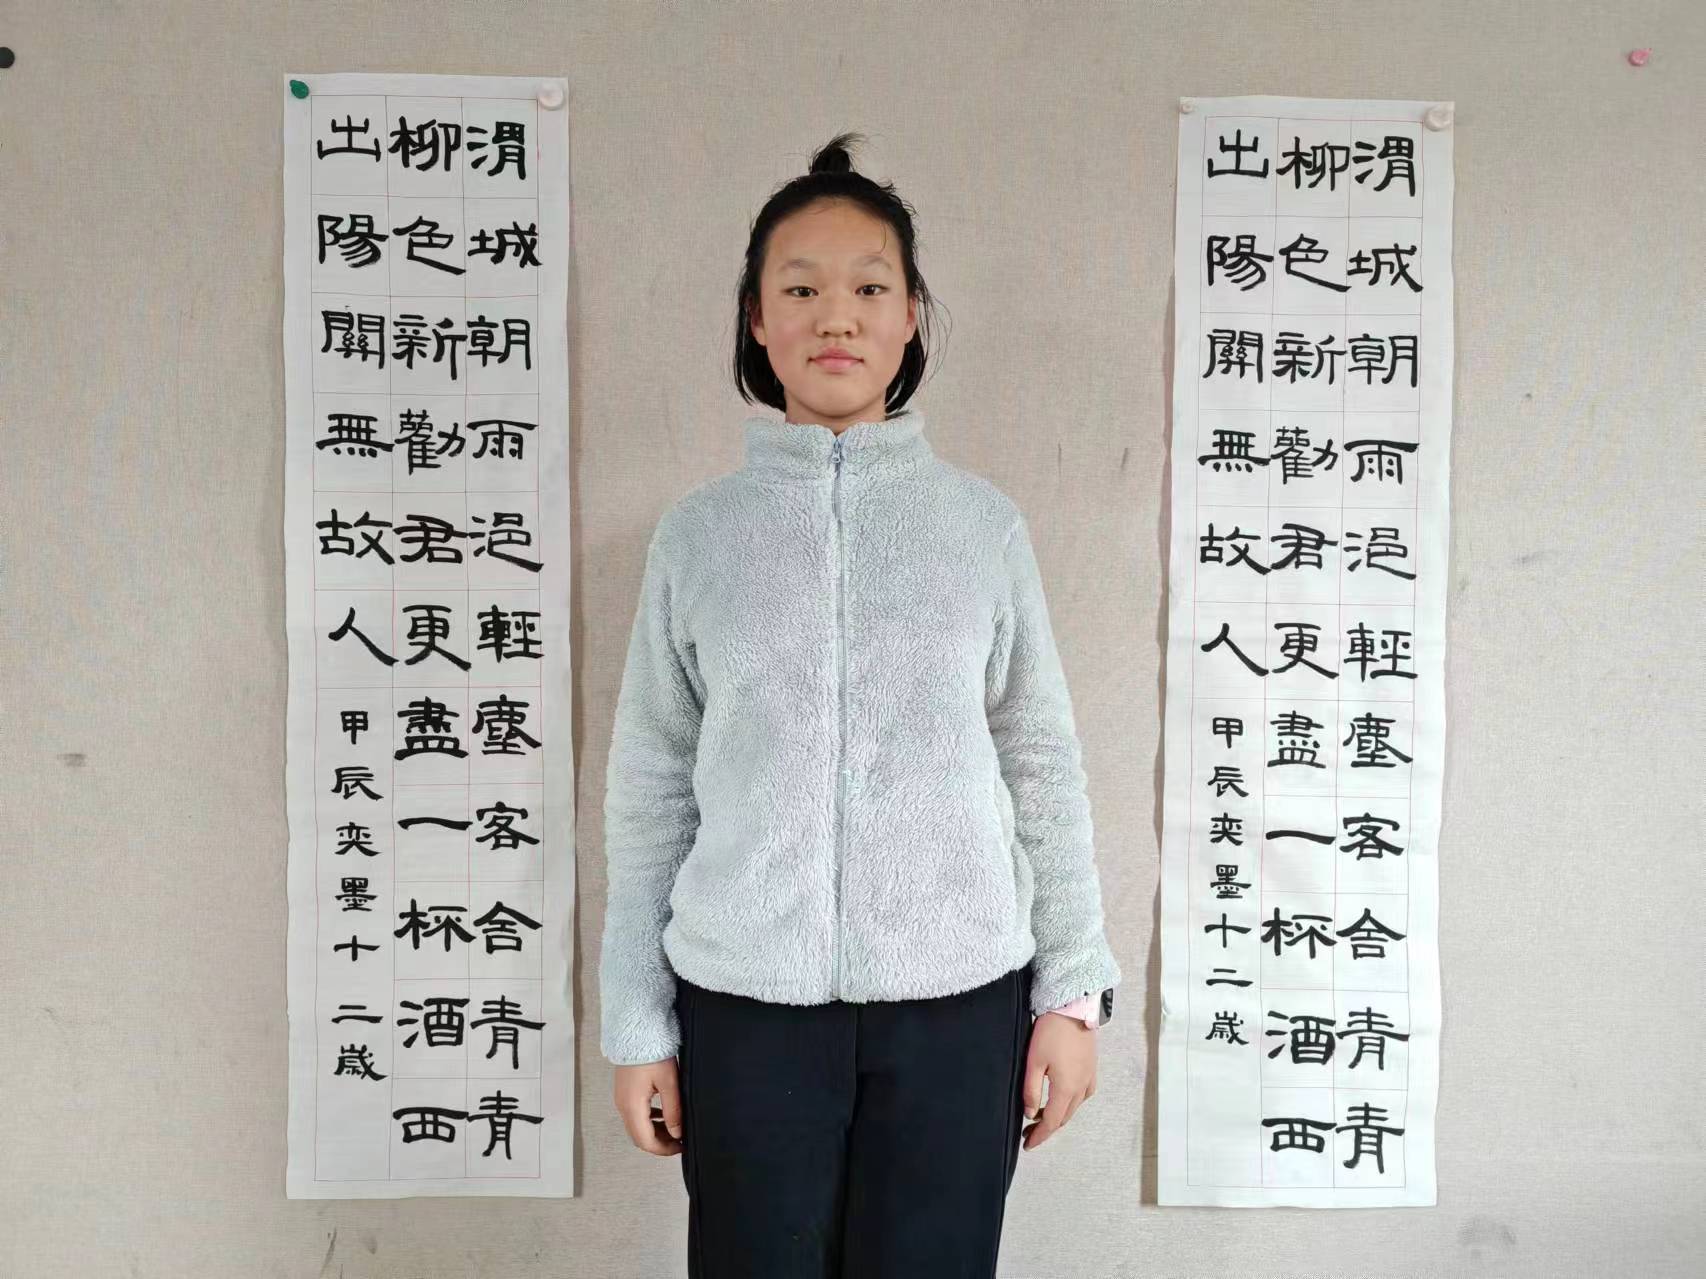 渭城朝雨浥輕塵客舍青青
柳色新勸君更盡一桮酒西
出陽關無故人
甲辰奕墨十二歲
渭城朝雨浥輕塵客舍青青
柳色新勸君更盡一桮酒西
出陽關無故人
甲辰奕墨十二歲